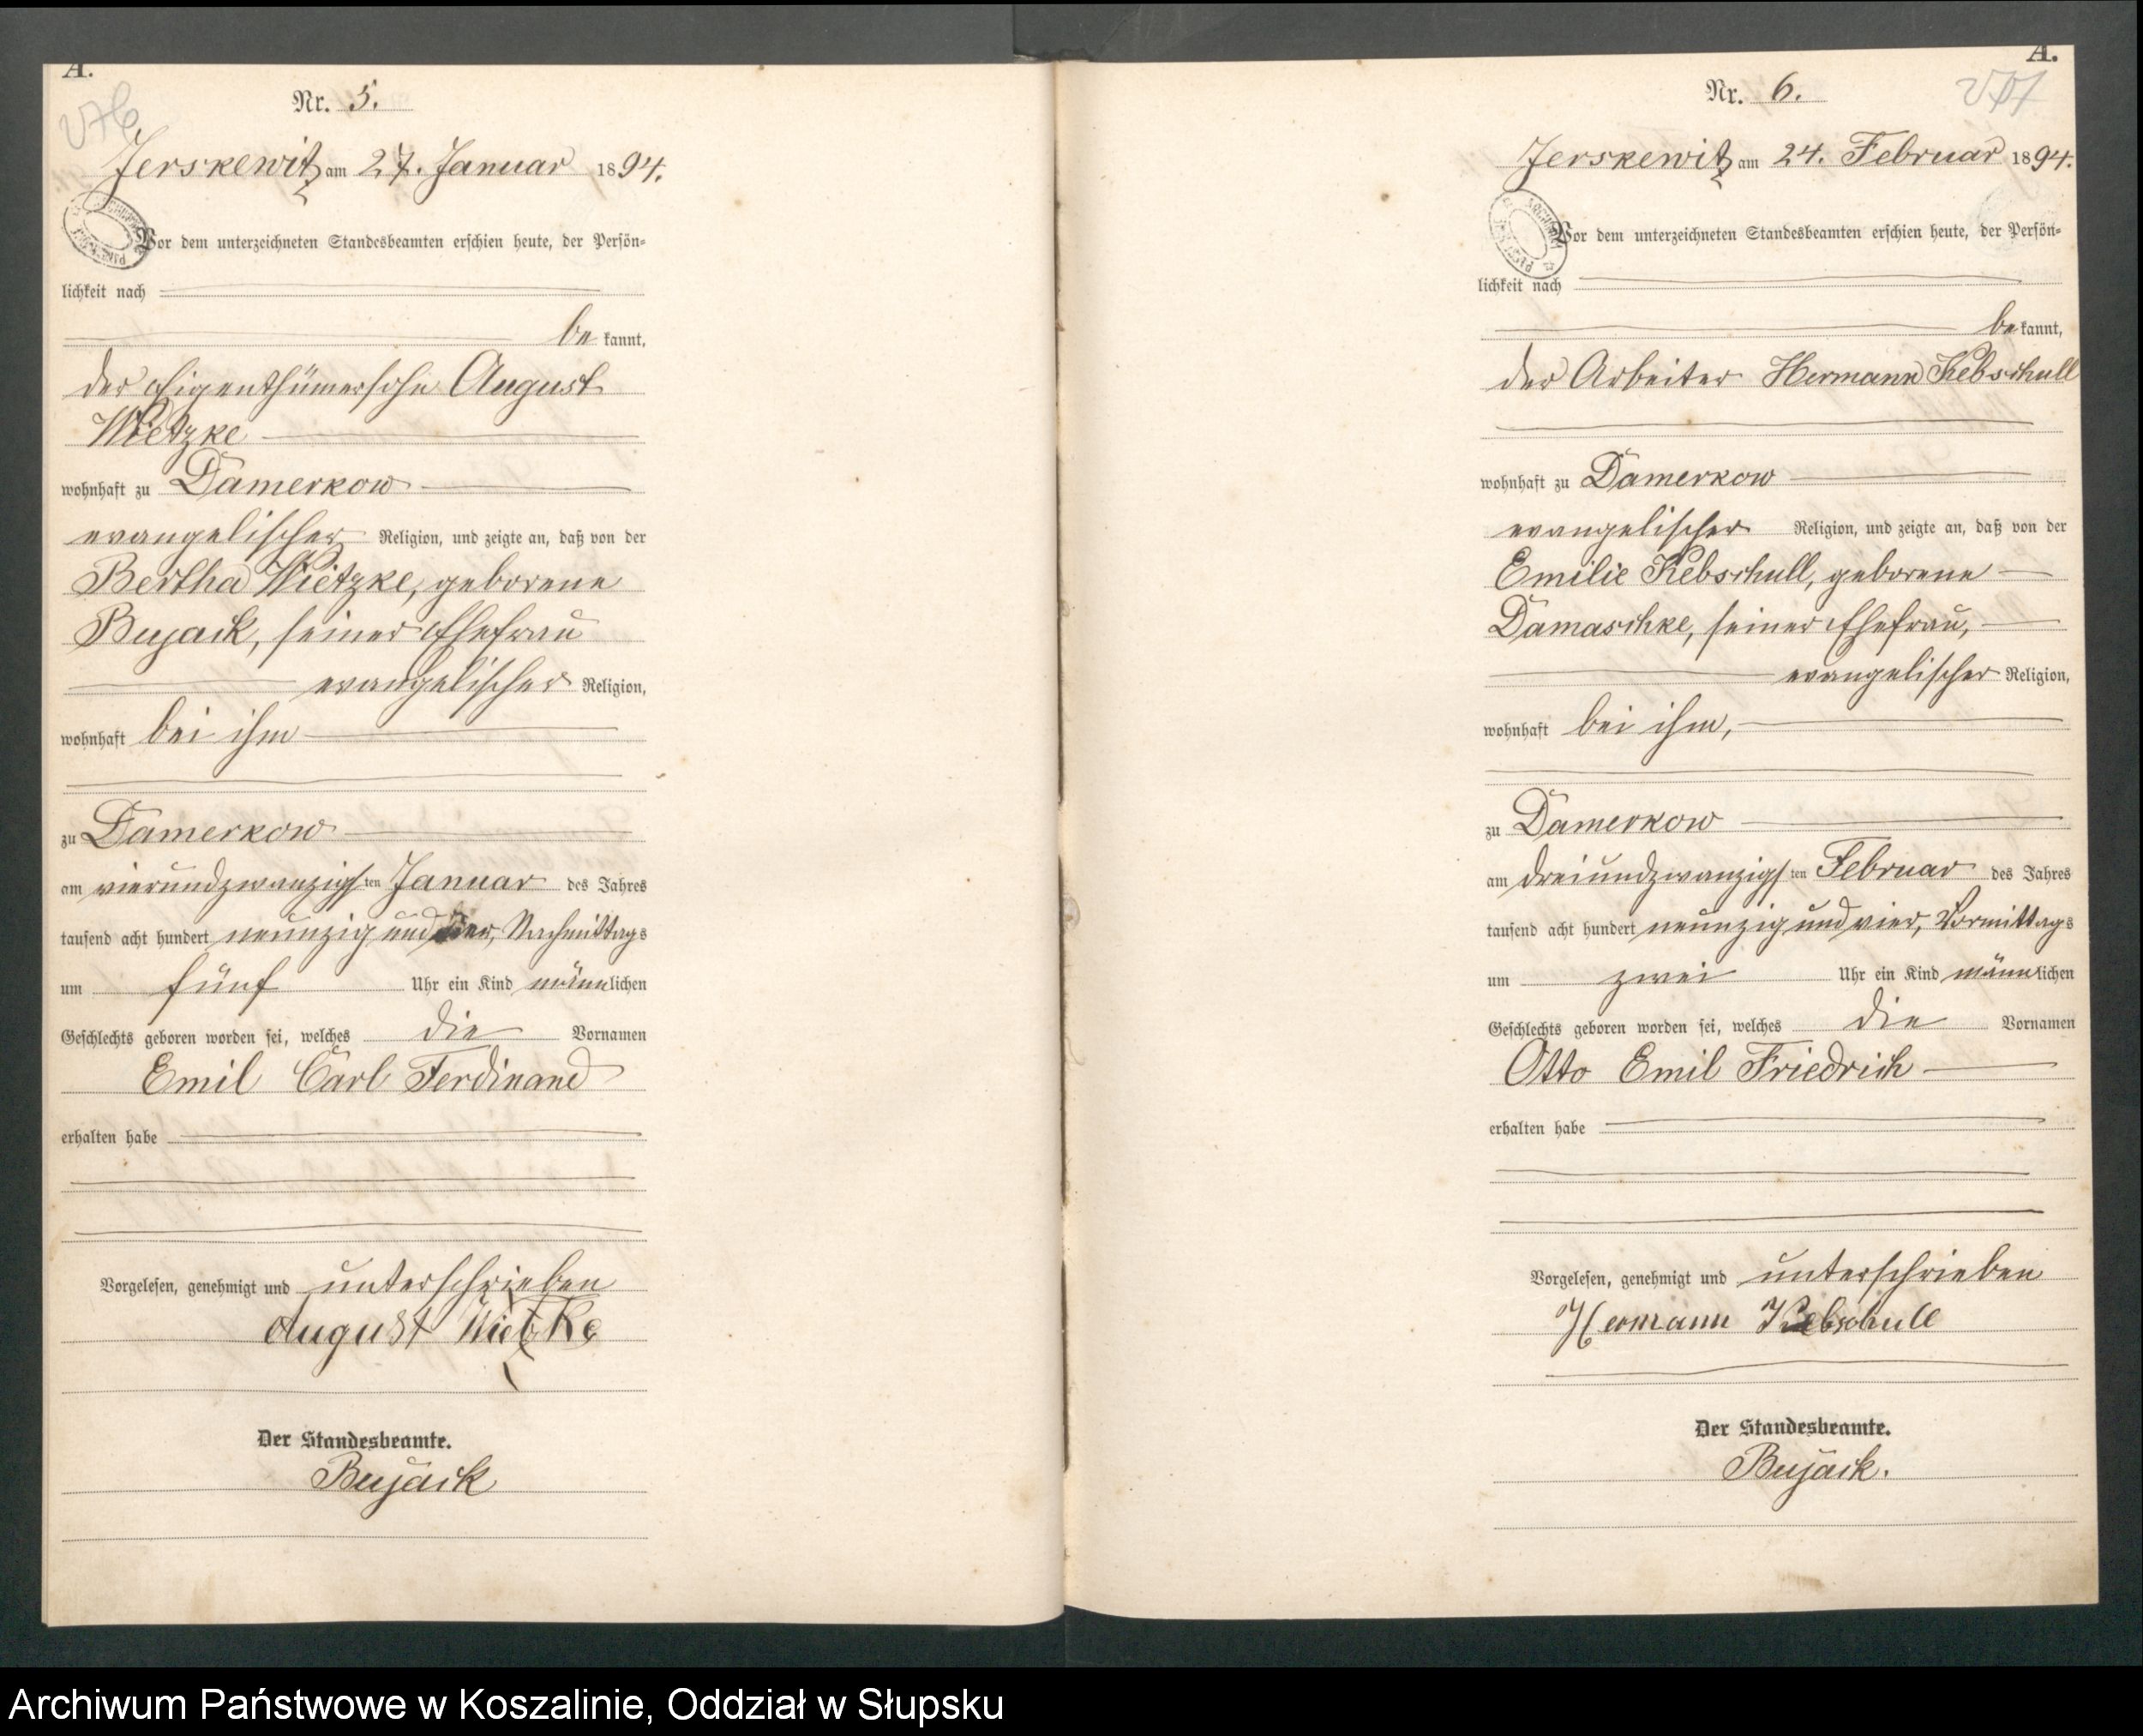 A.
Nr. 5.
Jerskewitz am 27. Januar 1894.
Vor dem unterzeichneten Standesbeamten erschien heute, der Persön-
lichkeit nach
be kannt,
der Eigenthümersohn August
Wietzke
wohnhaft zu Damerkow
evangelischer Religion, und zeigte an, daß von der
Bertha Wietzke, geborene
Bujack, seiner Ehefrau
evangelischer Religion,
wohnhaft bei ihm
zu Damerkow
am vierundzwanzigsten Januar des Jahres
tausend acht hundert neunzig und vier, Nachmittags
um fünf Uhr ein Kind männlichen
Geschlechts geboren worden sei, welches die Vornamen
Emil Carl Ferdinand
erhalten habe
Vorgelesen, genehmigt und unterschrieben
August Wietzke
Der Standesbeamte.
Bujack
A.
Nr. 6.
Jerskewitz am 24. Februar 1894.
Vor dem unterzeichneten Standesbeamten erschien heute, der Persön-
lichkeit nach
be kannt,
der Arbeiter Hermann Kebschull
wohnhaft zu Damerkow
evangelischer Religion, und zeigte an, daß von der
Emilie Kebschull, geborene
Damaschke, seiner Ehefrau,
evangelischer Religion,
wohnhaft bei ihm,
zu Damerkow
am dreiundzwanzigsten Februar des Jahres
tausend acht hundert neunzig und vier, Vormittags
um zwei Uhr ein Kind männlichen
Geschlechts geboren worden sei, welches die Vornamen
Otto Emil Friedrich
erhalten habe
Vorgelesen, genehmigt und unterschrieben
Hermann Kebschull
Der Standesbeamte.
Bujack.
Archiwum Państwowe w Koszalinie, Oddział w Słupsku